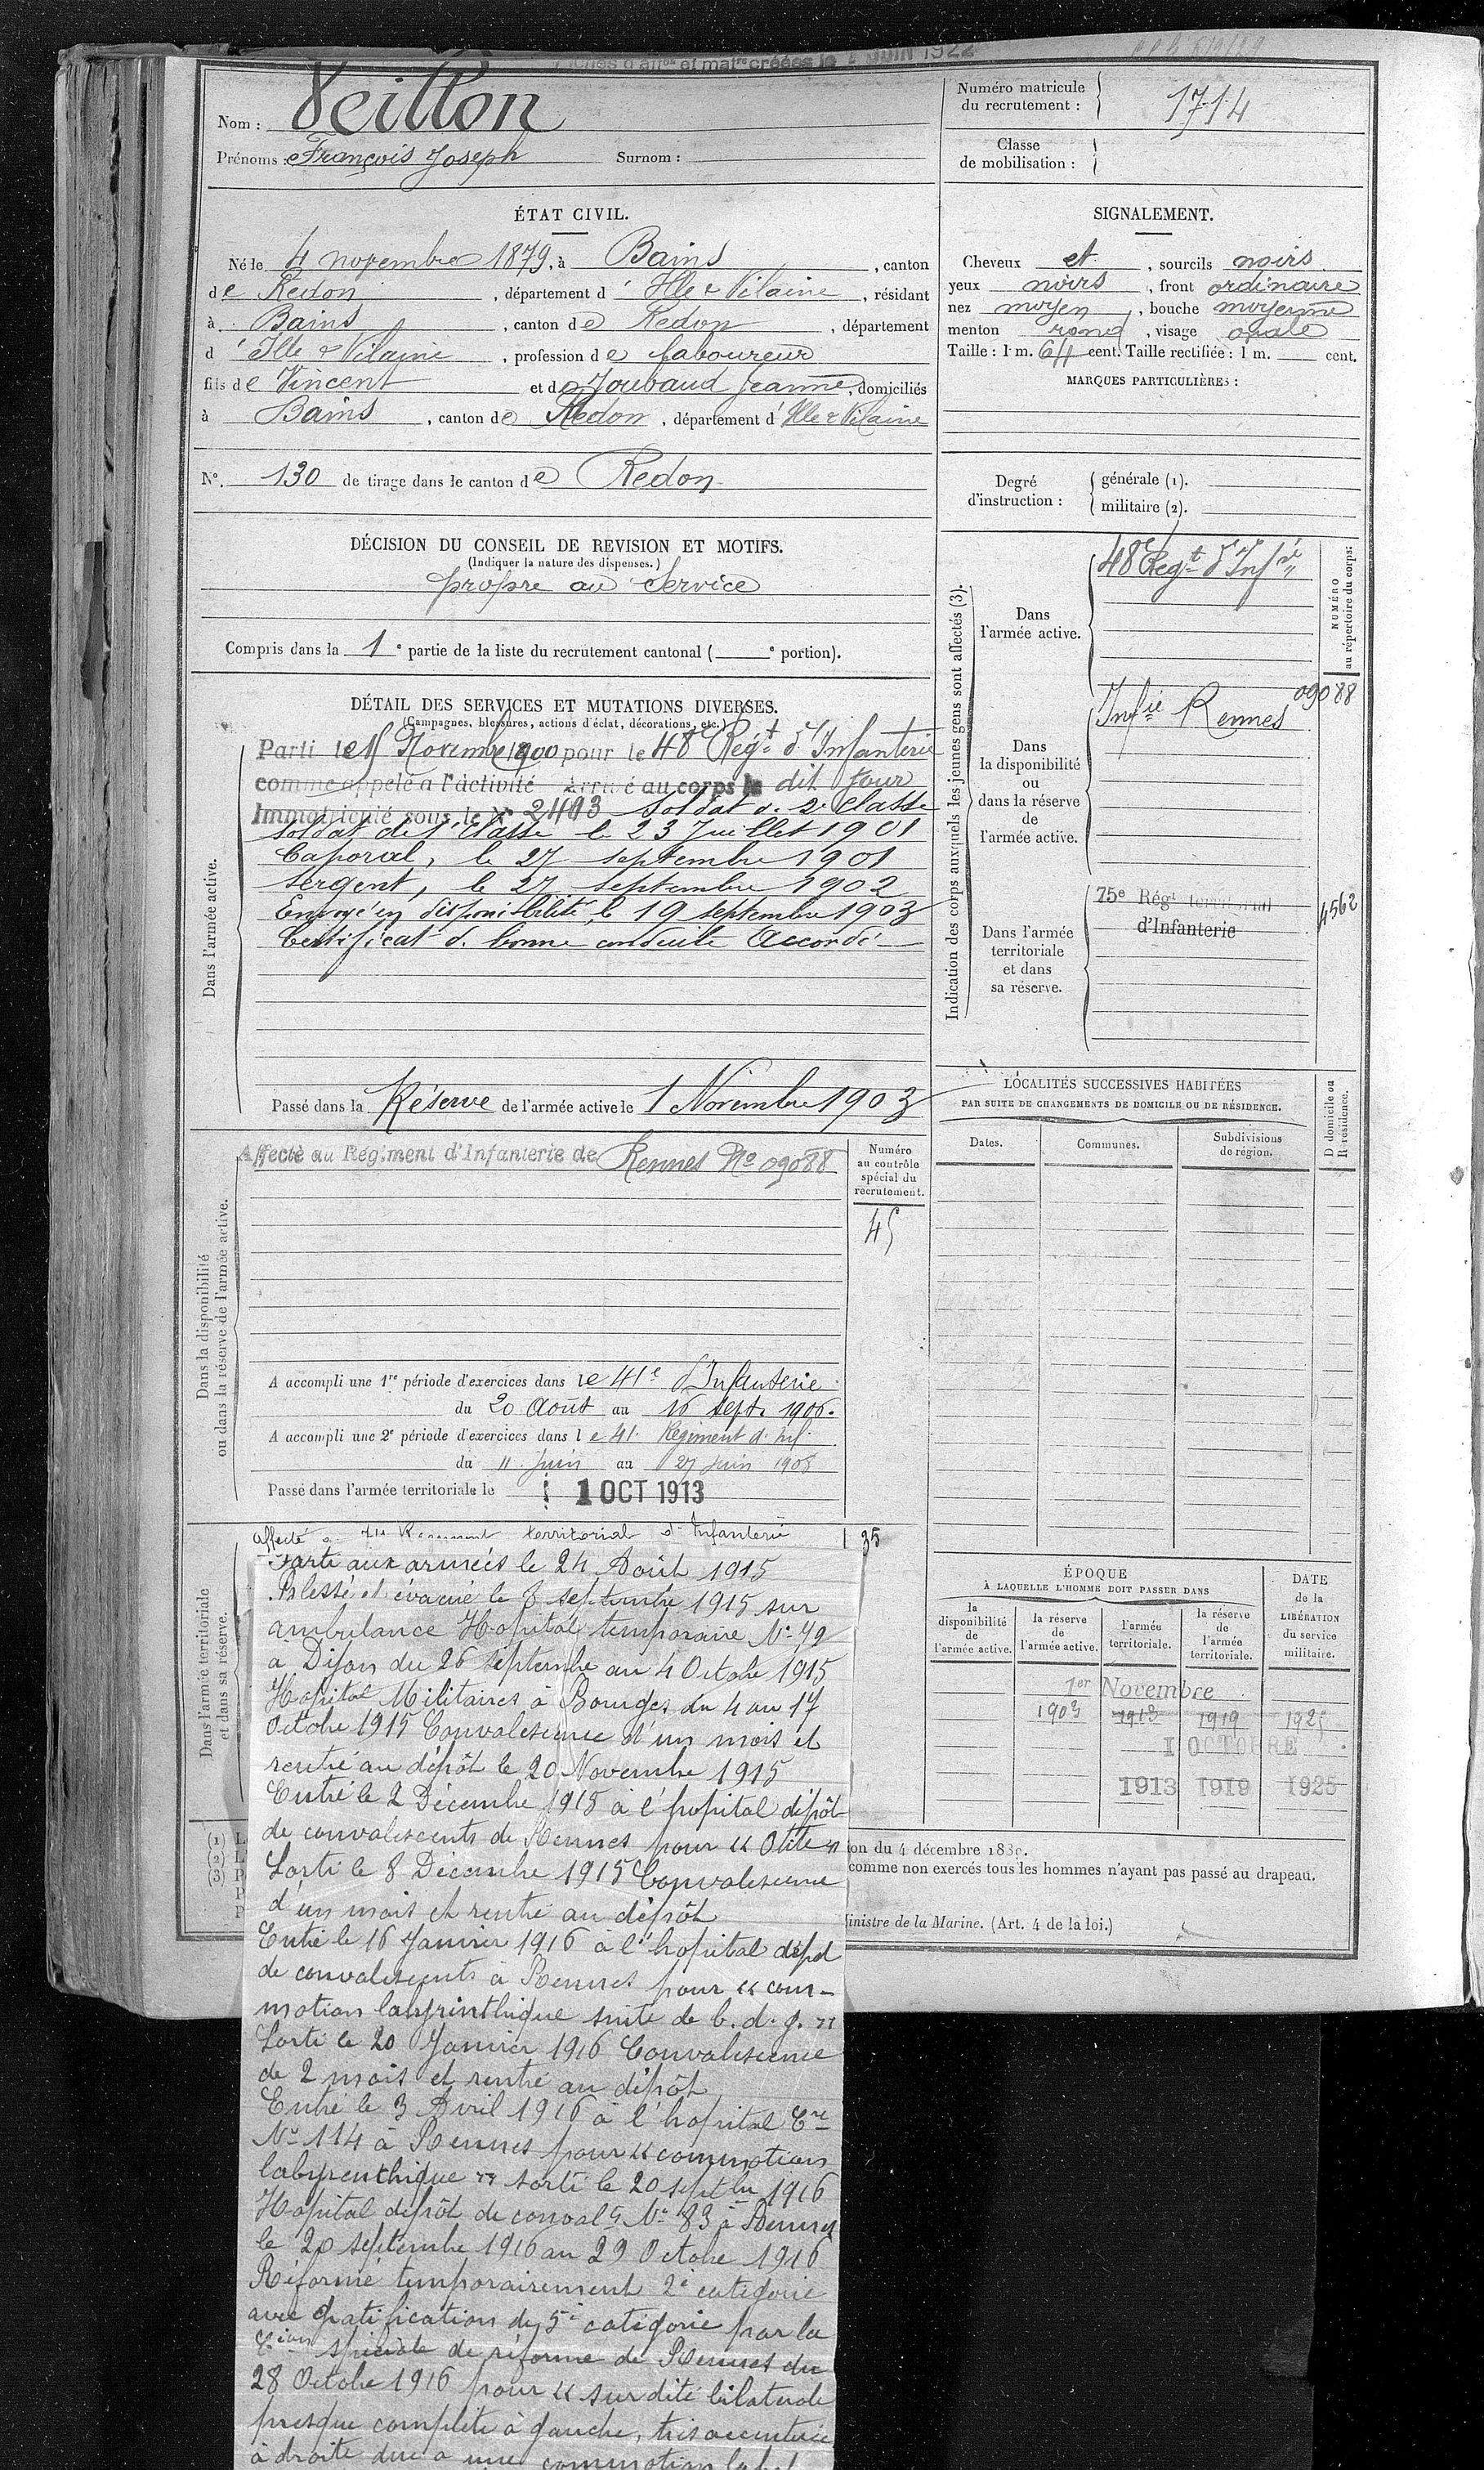 Fiches d'aff^on et mat^re créées le 1 JUIN 1922
Nom : Veillon
Prénoms : François Joseph Surnom :
Numéro matricule
du recrutement : 1714
Classe
de mobilisation :
ÉTAT CIVIL.
Né le 4 novembre 1879, à Bains, canton
de Redon, département d'Ille & Vilaine, résidant
à Bains, canton de Redon, département
d'Ille & Vilaine, profession de laboureur
fils de Vincent et de Joubaud Jeanne, domiciliés
à Bains, canton de Redon, département d'Ille & Vilaine
N° 130 de tirage dans le canton de Redon
SIGNALEMENT.
Cheveux et, sourcils noirs
yeux noirs, front ordinaire
nez moyen, bouche moyenne
menton rond, visage ovale
Taille : 1 m. 64 cent. Taille rectifiée : 1 m. cent.
MARQUES PARTICULIÈRES :
Degré
d'instruction :
générale (1).
militaire (2).
DÉCISION DU CONSEIL DE REVISION ET MOTIFS.
(Indiquer la nature des dispenses.)
propre au service
Compris dans la 1e partie de la liste du recrutement cantonal ( e portion).
DÉTAIL DES SERVICES ET MUTATIONS DIVERSES.
(Campagnes, blessures, actions d'éclat, décorations, etc.)
Dans l'armée active.
Parti le 15 Novembre 1900 pour le 48e Régt d'Infanterie
comme appelé à l'activité Arrivé au corps le dit jour
Immatriculé sous le N° 2493 Soldat d. 2e Classe
Soldat de 1e classe le 23 Juillet 1901
Caporal, le 27 septembre 1901
Sergent, le 27 septembre 1902
Envoyé en disponibilité, le 19 septembre 1903
Certificat d. bonne conduite Accordé
Passé dans la Réserve de l'armée active le 1 Novembre 1903
Indication des corps auxquels les jeunes gens sont affectés (3).
NUMÉRO
au répertoire du corps.
Dans
l'armée active.
48e Régt d'Infie
Dans
la disponibilité
ou
dans la réserve
de
l'armée active.
Infie Rennes 09088
Dans l'armée
territoriale
et dans
sa réserve.
75e Régt territorial
d'Infanterie
4562
Dans la disponibilité
ou dans la réserve de l'armée active.
Affecté au Régiment d'Infanterie de Rennes No 09088
Numéro
au contrôle
spécial du
recrutement.
45
A accompli une 1re période d'exercices dans le 41e d'Infanterie
du 20 Août au 16 sept. 1906.
A accompli une 2e période d'exercices dans le 41. Régiment d. inf.
du 11 Juin au 27 juin 1908
Passé dans l'armée territoriale le 1 OCT 1913
LOCALITÉS SUCCESSIVES HABITÉES
PAR SUITE DE CHANGEMENTS DE DOMICILE OU DE RÉSIDENCE.
Dates. Communes. Subdivisions
de région.
D domicile ou
R résidence.
ÉPOQUE
À LAQUELLE L'HOMME DOIT PASSER DANS
la
disponibilité
de
l'armée active.
la réserve
de
l'armée active.
l'armée
territoriale.
la réserve
de
l'armée
territoriale.
DATE
de la
LIBÉRATION
du service
militaire.
1er Novembre
1903 1913 1919 1925
1 OCTOBRE
1913 1919 1925
Dans l'armée territoriale
et dans sa réserve.
affecté Régiment territorial d'Infanterie 35
Parti aux armées le 24 Août 1915
Blessé et évacué le 8 septembre 1915 sur
ambulance Hopital temporaire N° 72
à Dijon du 26 septembre au 4 Octobre 1915
Hopital Militaires à Bourges du 4 au 17
Octobre 1915 Convalescence d'un mois et
rentré au dépôt le 20 Novembre 1915
Entré le 2 Décembre 1915 à l'hopital dépôt
de convalescents de Rennes pour « Otite »
Sorti le 8 Décembre 1915 Convalescence
d'un mois et rentré au dépôt
Entré le 16 Janvier 1916 à l'hopital dépôt
de convalescents à Rennes pour « com-
motion labyrinthique suite de b. d. g. »
Sorti le 20 Janvier 1916 Convalescence
de 2 mois et rentré au dépôt
Entré le 3 Avril 1916 à l'hopital Cre
N° 114 à Rennes pour « commotion
labyrenthique » sorti le 20 septbre 1916
Hopital dépôt de convalts N° 83 à Rennes
le 20 septembre 1916 au 29 Octobre 1916
Réformé temporairement 2e catégorie
avec gratification de 5e catégorie par la
Cion spéciale de réforme de Rennes du
28 Octobre 1916 pour « surdité bilatérale
presque complète à gauche, très accentuée
à droite due à une commotion
(1) L
(2) L
(3) P
P
P
ion du 4 décembre 1889.
comme non exercés tous les hommes n'ayant pas passé au drapeau.
Ministre de la Marine. (Art. 4 de la loi.)